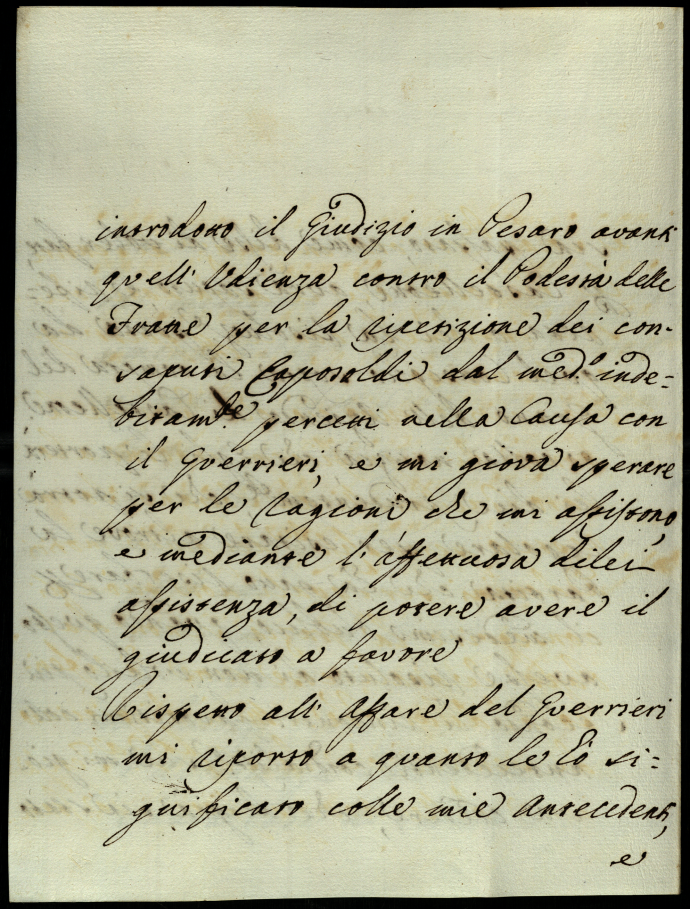 introdotto il Giudizio in Pesaro avanti
quell' Udienza contro il Podestà delle
Fratte per la ripetizione dei con-
saputi Caposoldi dal med.º inde-
bitam.te percetti nella Causa con
il Guerrieri, e mi giova sperare
per le ragioni che mi assistono,
e mediante l' affettuosa di lei
assistenza, di potere avere il
giudicato a favore
Rispetto all' Affare del Guerrieri
mi riporto a quanto le ò si=
gnificato colle mie Antecedenti,
e